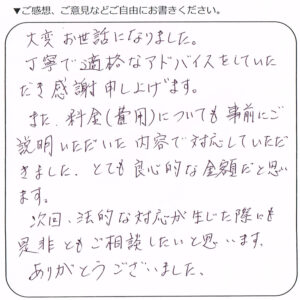 ▼ご感想、ご意見などご自由にお書きください。
大変お世話になりました。
丁寧で適格なアドバイスをしていた
だき感謝申し上げます。
また、料金(費用)についても事前にご
説明いただいた内容で対応していただ
きました。とても良心的な金額だと思い
ます。
次回、法的な対応が生じた際にも
是非ともご相談したいと思います。
ありがとうございました。